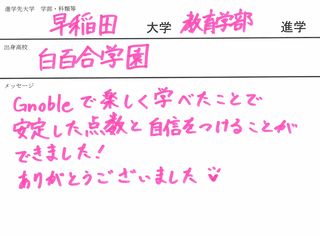 進学先大学 学部・科類等
早稲田 大学 教育学部 進学
出身高校
白百合学園
メッセージ
Gnobleで楽しく学べたことで
安定した点数と自信をつけることが
できました!
ありがとうございました